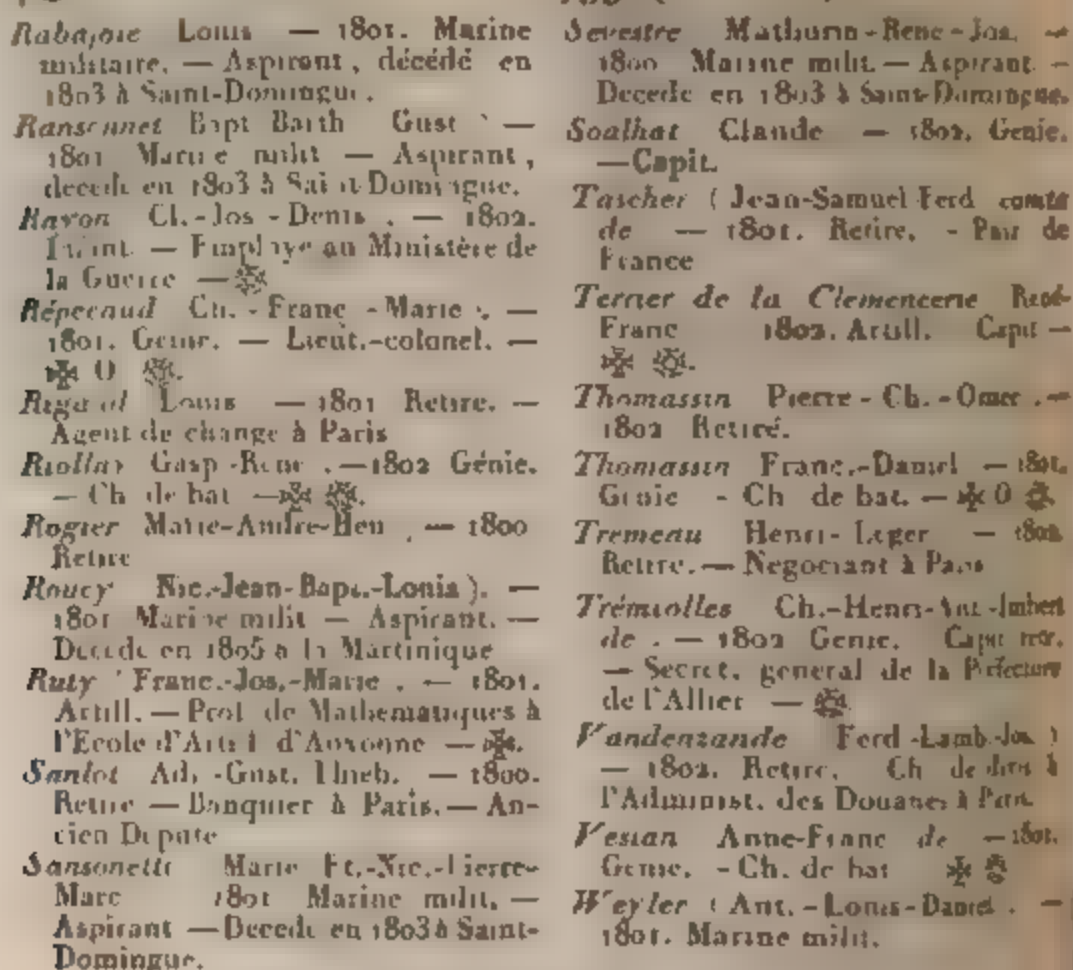 Rabajoie Louis — 1801. Marine
militaire. — Aspirant, décédé en
1803 à Saint-Domingue.
Bapt Barth Gust —
1801 Marine milit — Aspirant,
decede en 1803 à Saint Domingue.
Ravon Cl.-Jos - Denis . — 1802.
— Employe au Ministère de
la Guerre —
Répecaud Ch. - Franc - Marie . —
1801. Genie. — Lieut.-colonel. —
O
Louis — 1801 Retire. —
Agent de change à Paris
Riollay Gasp -Rene . — 1802 Génie.
— Ch de bat —
Rogier Marie-Andre-Hen . — 1800
Retire
Roucy Nic.-Jean-Bapt.-Louis ). —
1801 Marine milit — Aspirant. —
Decede en 1805 a la Martinique
Ruty Franc.-Jos.-Marie . — 1801.
Artill. — Prof de Mathematiques à
l'Ecole d'Artil d'Auxonne —
Sanlot Ad. -Gust. — 1800.
Retire — Banquier à Paris. — An-
cien Depute
Sansonetti Marie
Marc 1801 Marine milit. —
Aspirant — Decede en 1803 à Saint-
Domingue.
Sevestre Mathurin - Rene - Jos. —
1800 Marine milit. — Aspirant. —
Decede en 1803 à Saint-Domingue.
Soalhat Claude — 1802. Genie.
— Capit.
Tascher ( Jean-Samuel Ferd comte
de — 1801. Retire. - Pair de
France
Terrier de la Clemencerie René-
Franc 1802. Artill. Capit —
Thomassin Pierre - Ch. - Omer . —
1802 Retiré.
Thomassin Franc.-Daniel — 1801.
Genie - Ch de bat. — O
Tremeau Henri - Leger —
Retire. — Negociant à Paris
Trémiolles Ch.-Henri-Ant -Imbert
de . — 1802 Genie. Capit retr.
— Secret. general de la Prefecture
de l'Allier —
Vandenzande Ferd -Lamb-Jos )
— 1802. Retire. Ch de div à
l'Administ. des Douanes à Paris.
Vesian Anne-Franc de — 1801.
Genie. - Ch. de bat
Weyler ( Ant. - Louis - Daniel . —
1801. Marine milit.